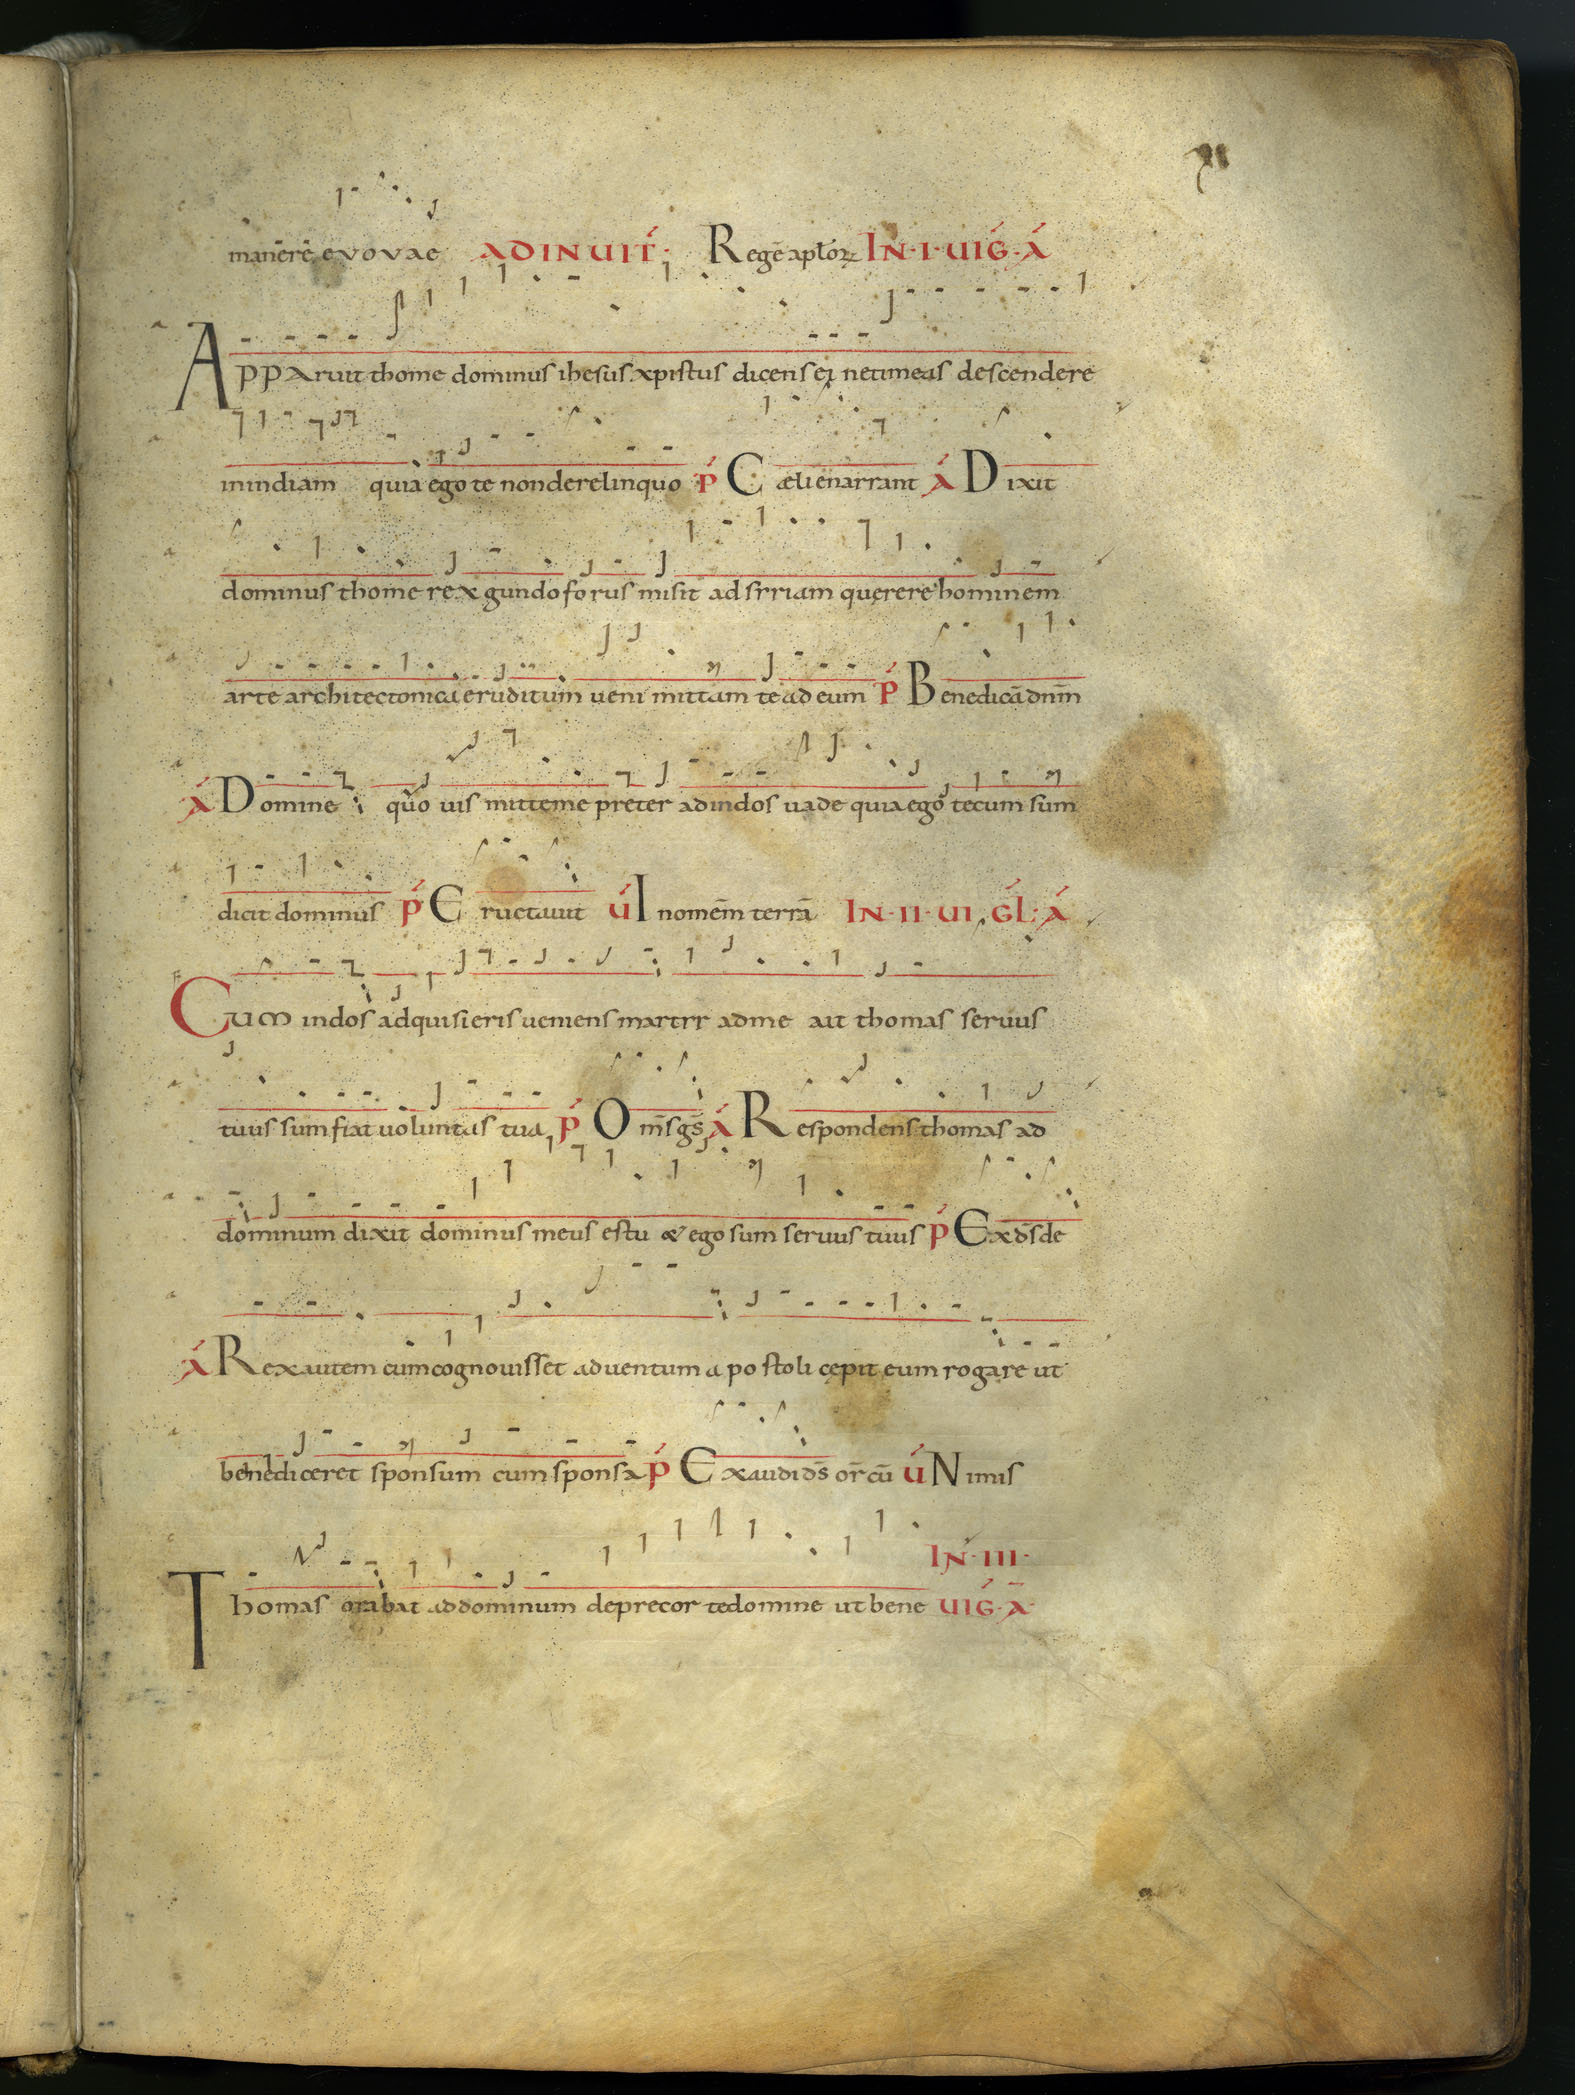 xı
manere evovae ADINUIT̄· Regē aptōꝝ IN·I·UIG·A
Apparuit thome dominus ihesus xpistus dicens ei netimeas descendere
inindiam quia ego te nonderelinquo p̄ Caelienarrant A Dixit
dominus thome rex gundoforus misit ad sirriam querere hominem
arte architectonica eruditum ueni mittam te ad eum p̄ Benedicā dnm̄
A Domine quo uis mitte me preter ad indos uade quia ego tecum sum
dicit dominus p̄ Eructauit U Inomem̄ terrā IN·II·UIGL· A
Cum indos adquisieris ueniens martir ad me ait thomas seruus
tuus sum fiat uoluntas tua p̄ Om̄s gs̄ A Respondens thomas ad
dominum dixit dominus meus es tu & ego sum seruus tuus p̄ Exds̄ de
A Rex autem cum cognouisset aduentum apostoli cepit eum rogare ut
benediceret sponsum cum sponsa p̄ Exaudi ds̄ or̄ cū U Nimis
IN·III·
Thomas orabat ad dominum deprecor te domine ut bene UIG·A